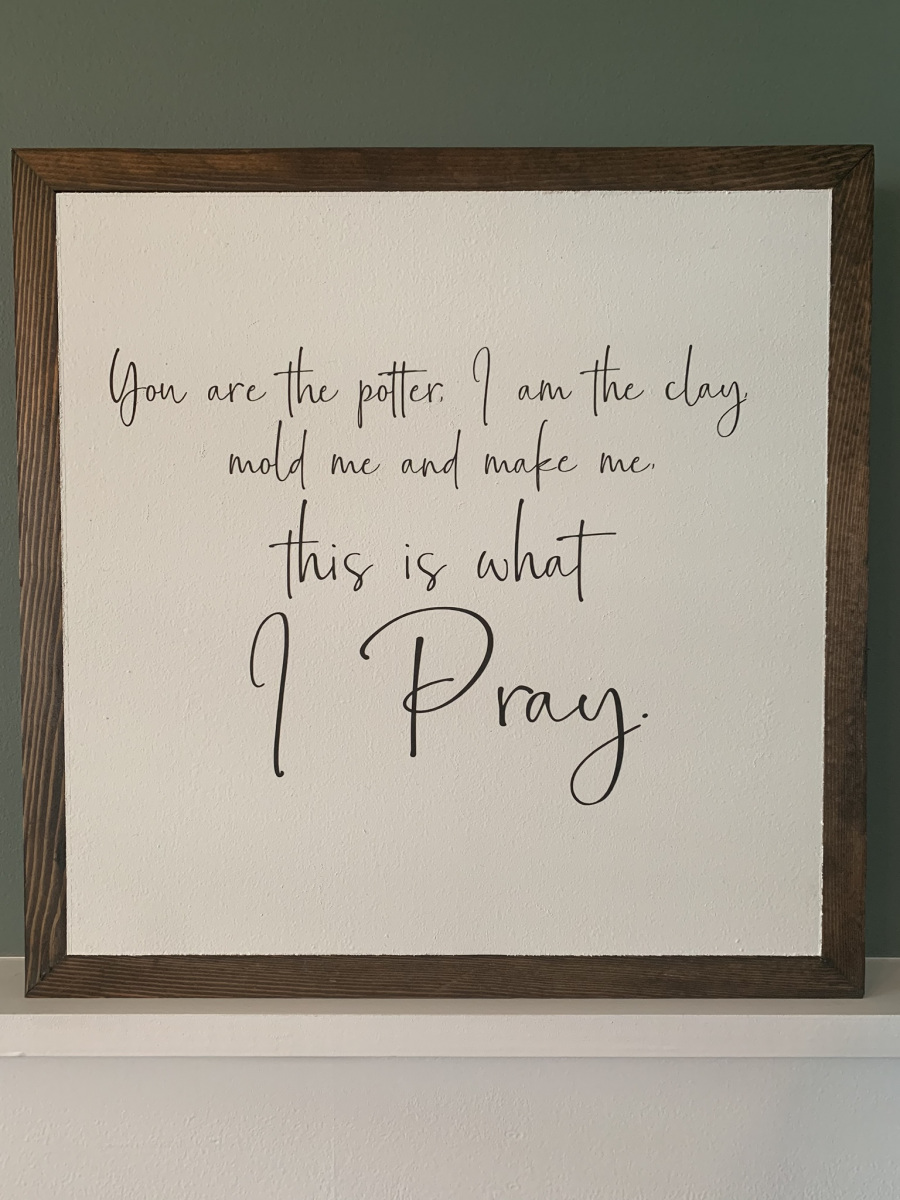 You are the potter, I am the clay,
mold me and make me,
this is what
I Pray.